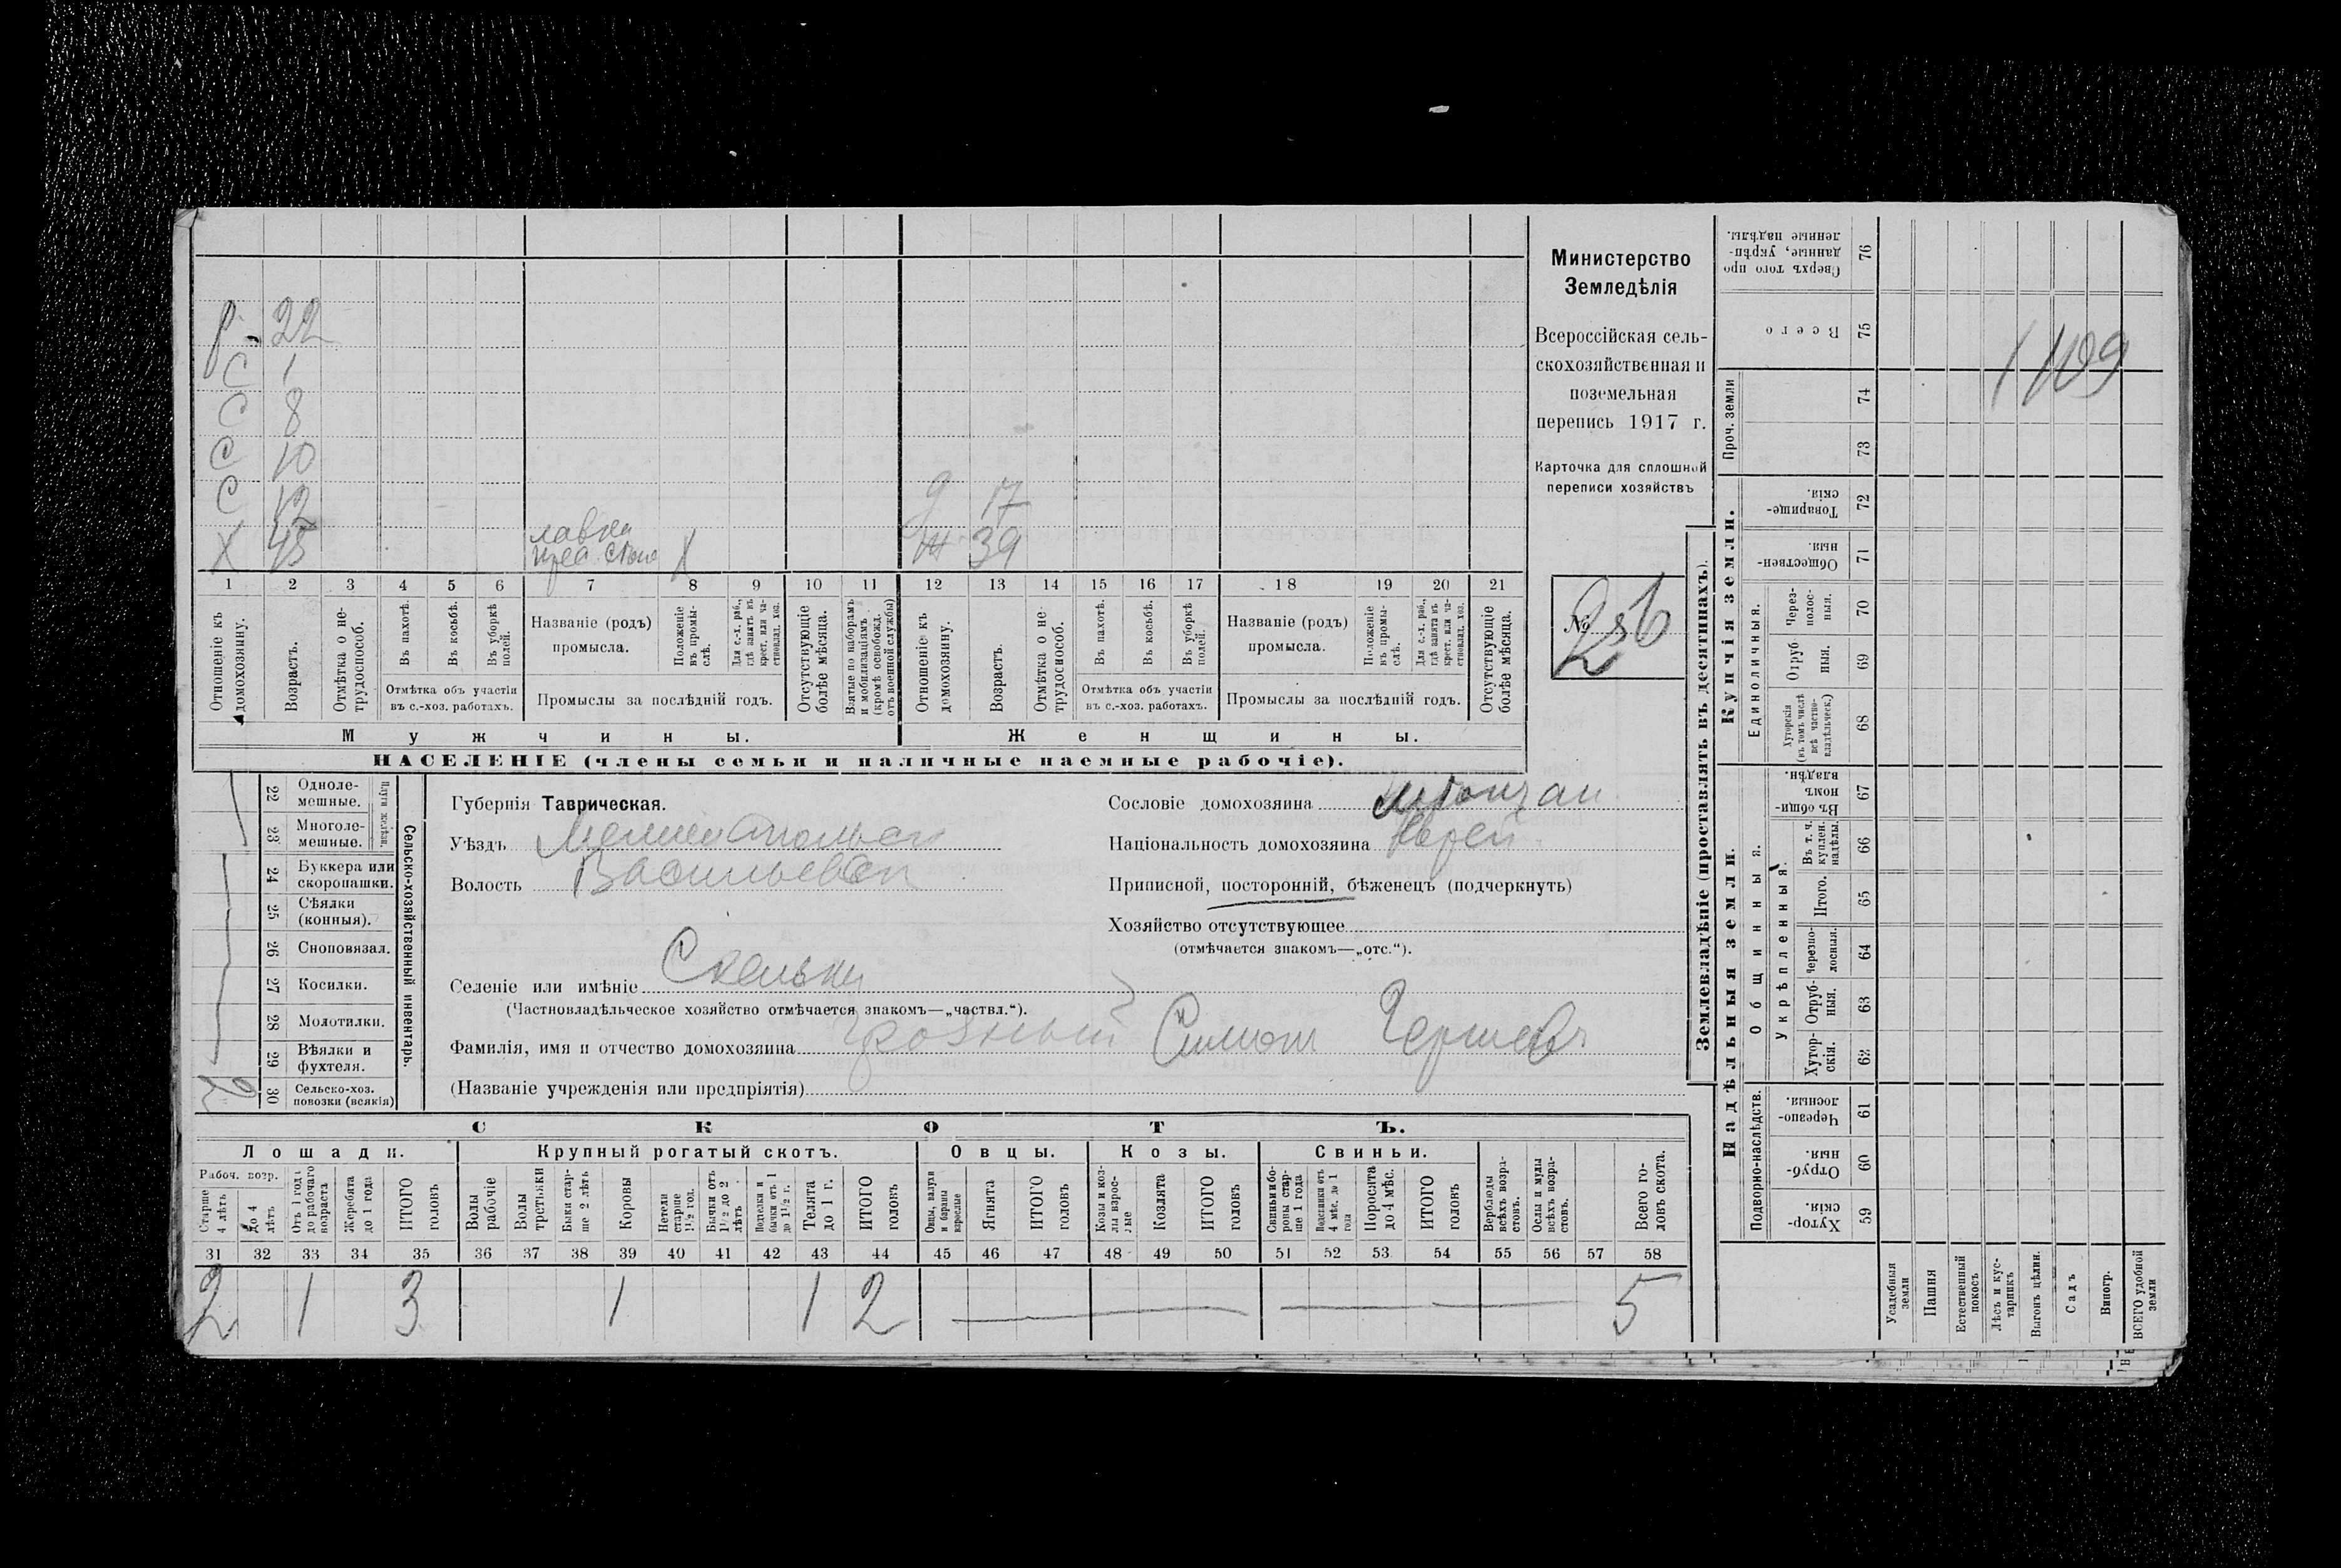 р. 22
С 1
С 8
С 10
С 12 д 17
Х 45 лавка Х ж 39
1 2 3 4 5 6 7 8 9 10 11 12 13 14 15 16 17 18 19 20 21
Отношеніе къ домохозяину.
Возрастъ.
Отмѣтка о не-трудоспособ.
Въ пахотѣ.
Въ косьбѣ.
Въ уборкѣ полей.
Отмѣтка объ участіи въ с.-хоз. работахъ.
Названіе (родъ) промысла.
Положеніе въ промы-слѣ.
Для с.-х. раб., гдѣ занятъ въ крест. или ча-стновлад. хоз.
Промыслы за послѣдній годъ.
Отсутствующіе болѣе мѣсяца.
Взятые по наборамъ и мобилизаціямъ (кромѣ освобожд. отъ военной службы)
Отношеніе къ домохозяину.
Возрастъ.
Отмѣтка о не-трудоспособ.
Въ пахотѣ.
Въ косьбѣ.
Въ уборкѣ полей.
Отмѣтка объ участіи въ с.-хоз. работахъ.
Названіе (родъ) промысла.
Положеніе въ промы-слѣ.
Для с.-х. раб., гдѣ занята въ крест. или ча-стновлад. хоз.
Промыслы за послѣдній годъ.
Отсутствующіе болѣе мѣсяца.
Мужчины. Женщины.
НАСЕЛЕНІЕ (члены семьи и наличные наемные рабочіе).
Министерство
Земледѣлія
Всероссійская сель-
скохозяйственная и
поземельная
перепись 1917 г.
Карточка для сплошной
переписи хозяйствъ
№ 256
22 Одноле-мешные.
23 Многоле-мешные.
Плуги желѣзн.
24 Буккера или скоропашки.
25 Сѣялки (конныя).
26 Сноповязал.
27 Косилки.
28 Молотилки.
29 Вѣялки и фухтеля.
30 Сельско-хоз. повозки (всякія)
Сельско-хозяйственный инвентарь.
Губернія Таврическая.
Уѣздъ Мелитопольск
Волость Васильевск
Селеніе или имѣніе Скельки
(Частновладѣльческое хозяйство отмѣчается знакомъ—„частвл.“).
Фамилія, имя и отчество домохозяина Грозный Симон
(Названіе учрежденія или предпріятія)
Сословіе домохозяина мѣщан
Національность домохозяина еврей
Приписной, посторонній, бѣженецъ (подчеркнуть)
Хозяйство отсутствующее
(отмѣчается знакомъ—„отс.“).
СКОТЪ.
Лошади. Крупный рогатый скотъ. Овцы. Козы. Свиньи.
Рабоч. возр.
Старше 4 лѣтъ
До 4 лѣтъ
Отъ 1 года до рабочаго возраста
Жеребята до 1 года
ИТОГО головъ
Волы рабочіе
Волы третьяки
Быки стар-ше 2 лѣтъ
Коровы
Нетели старше 1½ год.
Бычки отъ 1½ до 2 лѣтъ
Подтелки и бычки отъ 1 до 1½ г.
Телята до 1 г.
ИТОГО головъ
Овцы, валухи и бараны взрослые
Ягнята
ИТОГО головъ
Козы и коз-лы взрос-лые
Козлята
ИТОГО головъ
Свиньи и бо-ровы стар-ше 1 года
Подсвинки отъ 4 мѣс. до 1 года
Поросята до 4 мѣс.
ИТОГО головъ
Верблюды всѣхъ возра-стовъ.
Ослы и мулы всѣхъ возра-стовъ.
Всего го-ловъ скота.
31 32 33 34 35 36 37 38 39 40 41 42 43 44 45 46 47 48 49 50 51 52 53 54 55 56 57 58
2 1 3 1 1 2 5
Землевладѣніе (проставлять въ десятинахъ).
Купчія земли.
Надѣльныя земли.
Сверхъ того про данные, укрѣп-ленные надѣлы. 76
Всего 75
1109
Проч. земли 74 73
Товарище-скія. 72
Обществен-ныя. 71
Единоличныя.
Через-полос-ныя. 70
Отруб-ныя. 69
Хуторскія (въ томъ числѣ всѣ частно-владѣльческ.) 68
Общинныя.
Въ общин-номъ владѣн. 67
Укрѣпленныя.
Въ т. ч. куплен. надѣлы. 66
Итого. 65
Черезпо-лосныя. 64
Отруб-ныя. 63
Хутор-скія. 62
Подворно-наслѣдств.
Черезпо-лосныя. 61
Отруб-ныя. 60
Хутор-скія. 59
Усадебныя земли
Пашня
Естественный покосъ
Лѣсъ и кус-тарникъ
Выгонъ цѣлин.
Садъ
Виногр.
ВСЕГО удобной земли